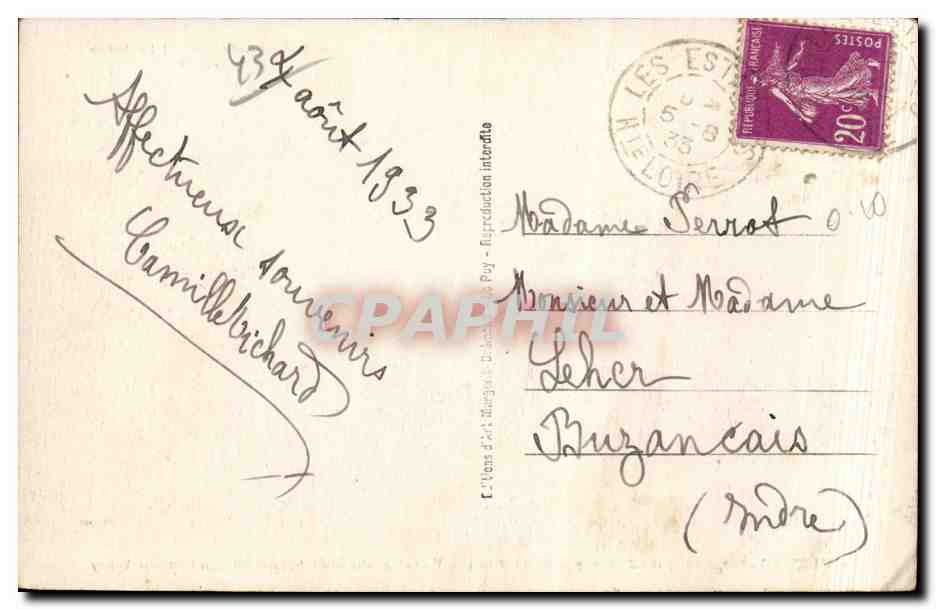 43
août 1933
Affectueux souvenirs
Camille Richard
Editions d'Art Margerit-Brémond, Le Puy - Reproduction interdite
CPAPHIL
LES EST
5 - 8
33
HTE LOIRE
REPUBLIQUE FRANÇAISE
POSTES
20c
Madame Perrot
0.60
Monsieur et Madame
Leher
Buzancais
(Indre)